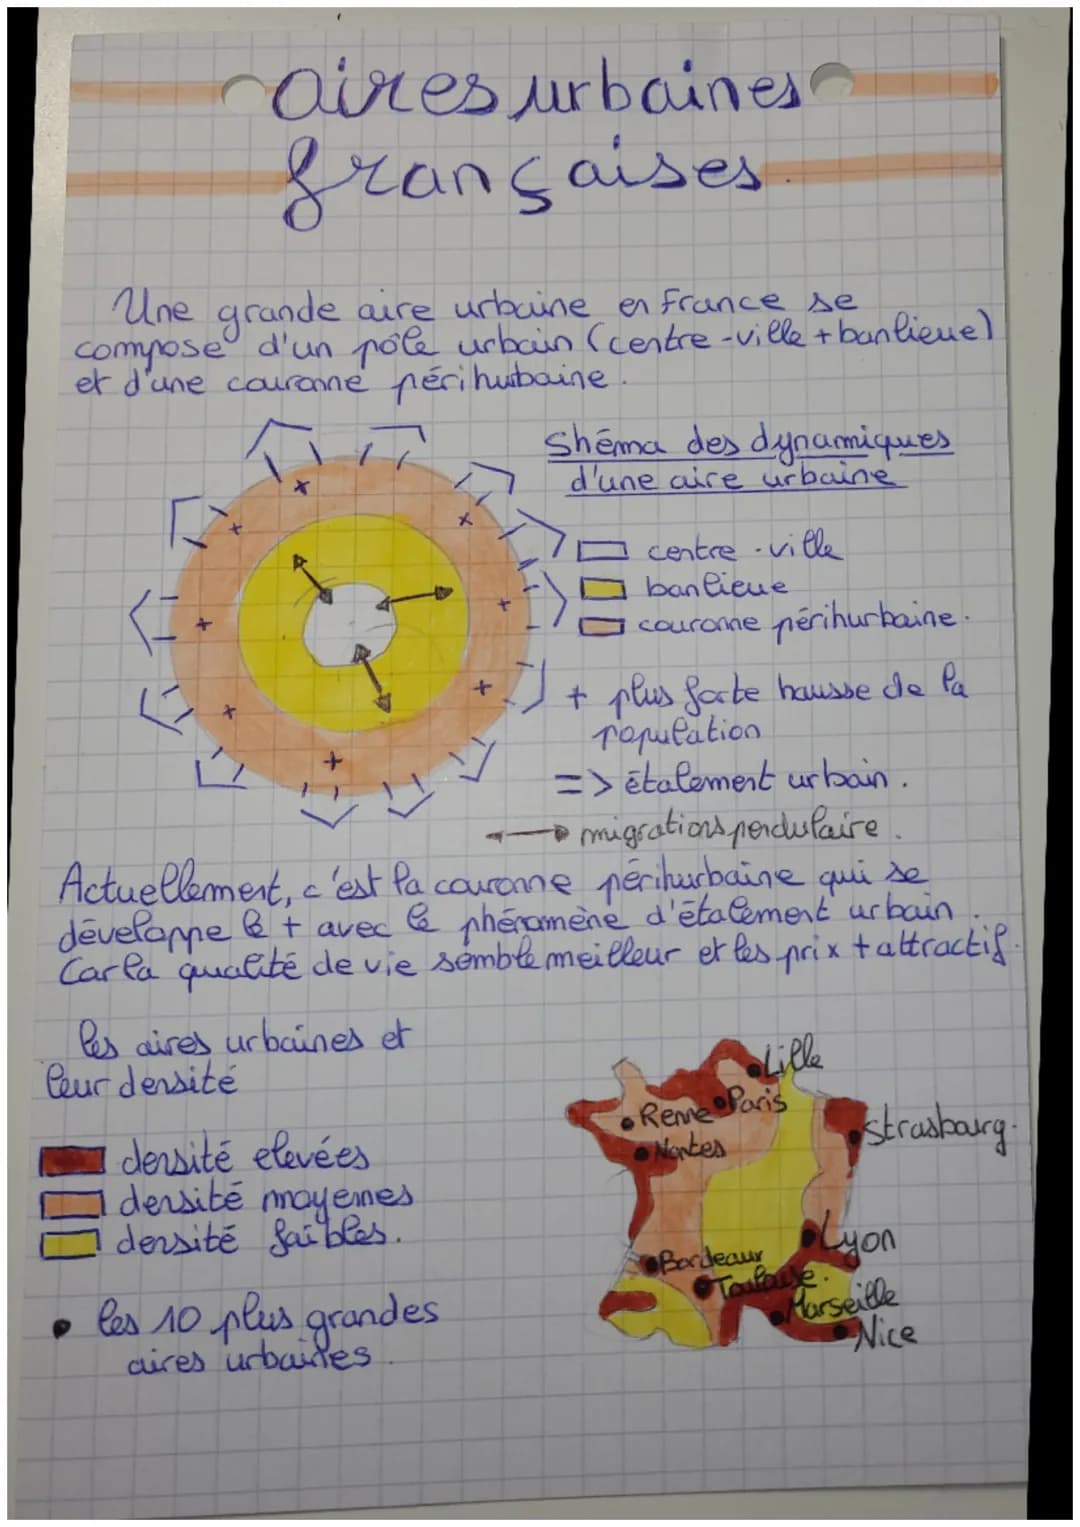 aires urbaines
françaises.
Une grande aire urbaine en France se
compose d'un pôle urbain (centre-ville + banlieue)
et d'une couronne périhurbaine.
Shéma des dynamiques
d'une aire urbaine
centre-ville
banlieue
couronne périhurbaine.
+ plus forte hausse de la
population
=> étalement urbain.
migrations pendulaire.
Actuellement, c'est la couronne périhurbaine qui se
développe le + avec le phénomène d'étalement urbain.
Car la qualité de vie semble meilleur et les prix + attractif.
les aires urbaines et
leur densité
densité elevées
densité moyennes
densité faibles.
• les 10 plus grandes
aires urbaines.
Lille
Paris
Renne
Strasbourg.
Nantes
Lyon
Bordeaux
Toulouse.
Marseille
Nice